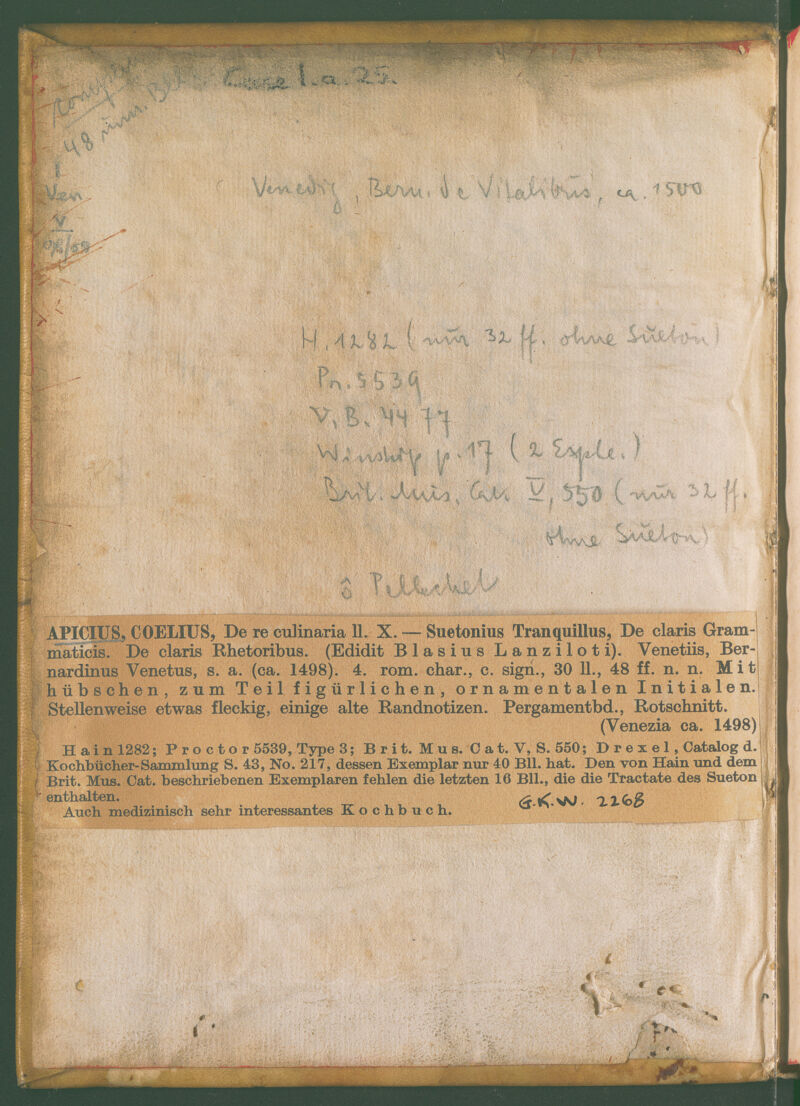 48 num. Bll.
Inc 1. a. 25.
Ven
V
98/99
Venedig, Bern. de Vitalibus, ca. 1500
H. 1282 (nur 32 ff. ohne Sueton)
Pr. 5539
V. B. 4477
Winship p. 17 (2 Exple.)
Brit. Mus. Cat. V, 550 (nur 32 ff.
ohne Sueton)
Pellechet
APICIUS, COELIUS, De re culinaria ll. X. — Suetonius Tranquillus, De claris Gram-
maticis. De claris Rhetoribus. (Edidit Blasius Lanziloti). Venetiis, Ber-
nardinus Venetus, s. a. (ca. 1498). 4. rom. char., c. sign., 30 ll., 48 ff. n. n. Mit
hübschen, zum Teil figürlichen, ornamentalen Initialen.
Stellenweise etwas fleckig, einige alte Randnotizen. Pergamentbd., Rotschnitt.
(Venezia ca. 1498)
Hain 1282; Proctor 5539, Type 3; Brit. Mus. Cat. V, S. 550; Drexel, Catalog d.
Kochbücher-Sammlung S. 43, No. 217, dessen Exemplar nur 40 Bll. hat. Den von Hain und dem
Brit. Mus. Cat. beschriebenen Exemplaren fehlen die letzten 16 Bll., die die Tractate des Sueton
enthalten.
Auch medizinisch sehr interessantes Kochbuch.
G.K.W. 2268